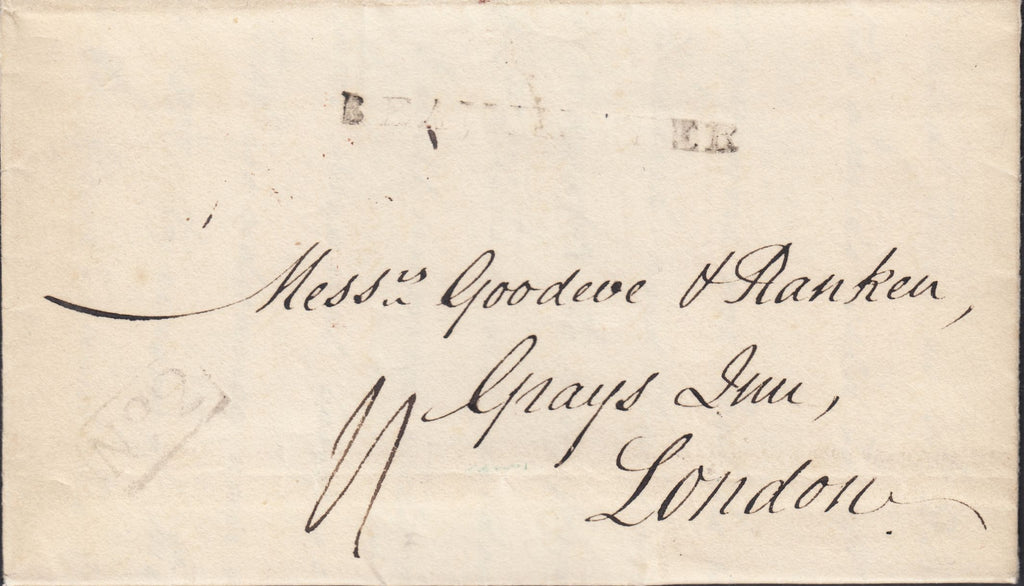 BEAMINSTER
Messrs Goodeve & Ranken,
Grays Inn,
London.
No 2